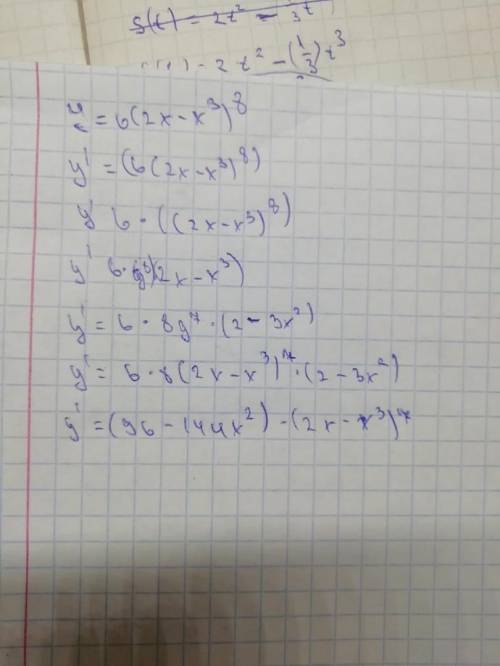 S(t) = 2t² - 3t
2t² - (1/3)t³
y = 6(2x-x³)⁸
y' = (6(2x-x³)⁸)
y' 6·((2x-x³)⁸)
y' 6·(g⁸)(2x-x³)
y' = 6·8g⁷·(2-3x²)
y' = 6·8(2x-x³)⁷·(2-3x²)
y' = (96-144x²)-(2x-x³)⁷